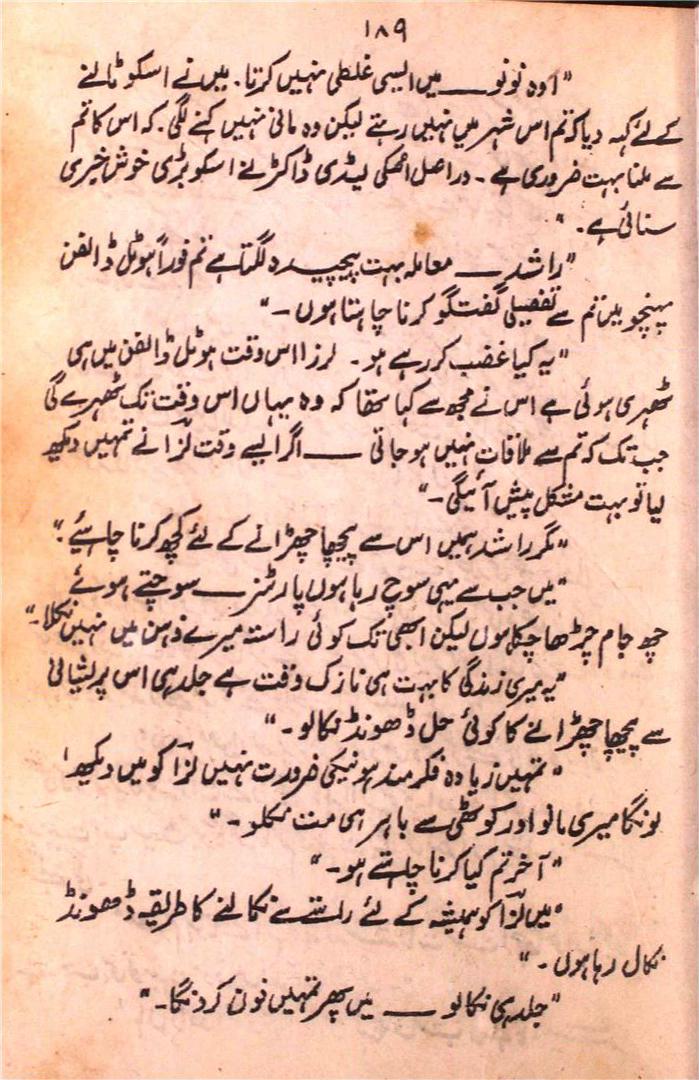 ۱۸۹
"اوہ نو نو ــــ میں ایسی غلطی نہیں کرتا. میں نے اسکو ٹالنے
کے لئے کہہ دیا کہ تم اس شہر میں نہیں رہتے لیکن وہ مانی نہیں کہنے لگی. کہ اس کا تم
سے ملنا بہت ضروری ہے ۔ دراصل اسکی لیڈی ڈاکٹر نے اسکو بڑی خوش خبری
سنائی ہے. "
"راشد ــــ معاملہ بہت پیچیدہ لگتا ہے تم فوراً ہوٹل ڈالفن
پہنچو میں تم سے تفصیلی گفتگو کرنا چاہتا ہوں ۔"
"یہ کیا غضب کر رہے ہو ۔ لرزا اس وقت ہوٹل ڈالفن میں ہی
ٹھہری ہوئی ہے اس نے مجھ سے کہا تھا کہ وہ یہاں اس وقت تک ٹھہرے گی
جب تک کہ تم سے ملاقات نہیں ہو جاتی ــــ اگر ایسے وقت لزا نے تمہیں دیکھ
لیا تو بہت مشکل پیش آئیگی ۔"
"مگر راشد ہمیں اس سے پیچھا چھڑانے کے لئے کچھ کرنا چاہیئے ."
"میں جب سے یہی سوچ رہا ہوں پارٹنر ــــ سوچتے ہوئے
چھ جام چڑھا چکا ہوں لیکن ابھی تک کوئی راستہ میرے ذہن میں نہیں نکلا ۔"
"یہ میری زندگی کا بہت ہی نازک وقت ہے جلد ہی اس پریشانی
سے پیچھا چھڑانے کا کوئی حل ڈھونڈ نکالو ۔"
"تمہیں زیادہ فکر مند ہونیکی ضرورت نہیں لزا کو میں دیکھ
لونگا میری مانو اور کوٹھی سے باہر ہی مت نکلو ۔"
"آخر تم کیا کرنا چاہتے ہو ۔"
"میں لزا کو ہمیشہ کے لئے راستے سے نکالنے کا طریقہ ڈھونڈ
نکال رہا ہوں ۔"
"جلد ہی نکالو ــــ میں پھر تمہیں فون کرونگا ۔"